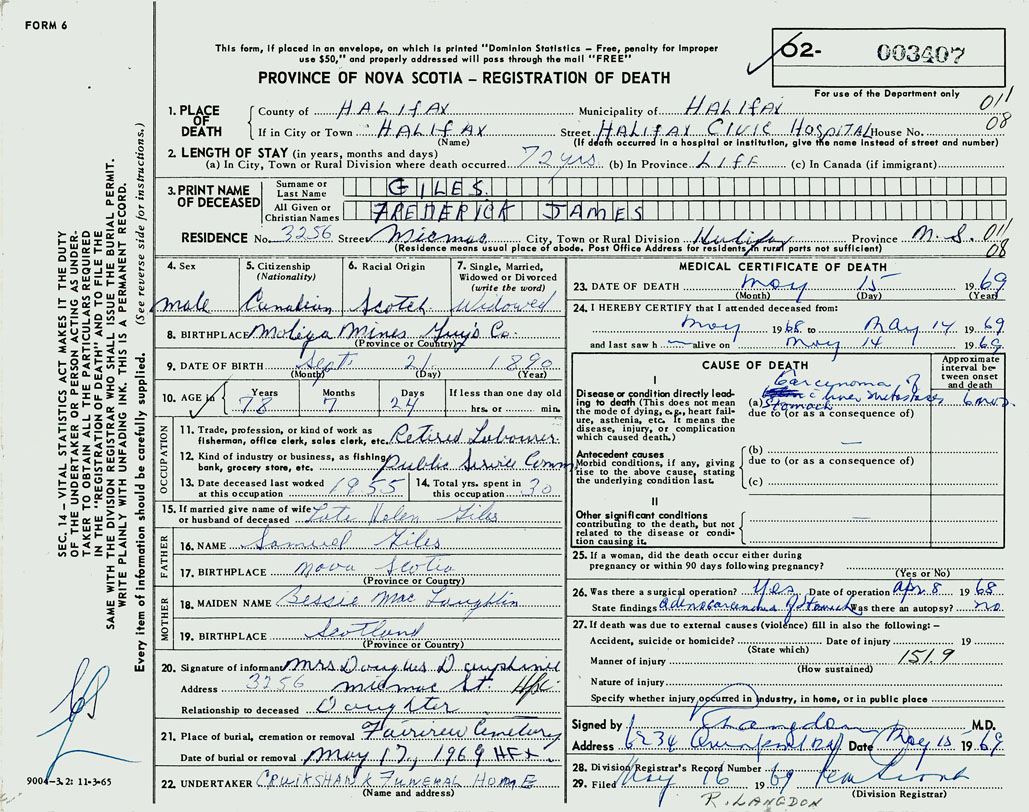 FORM 6
This form, if placed in an envelope, on which is printed "Dominion Statistics – Free, penalty for improper
use $50," and properly addressed will pass through the mail "FREE"
PROVINCE OF NOVA SCOTIA – REGISTRATION OF DEATH
02- 003407
For use of the Department only
011
08
1. PLACE OF DEATH
County of HALIFAX Municipality of HALIFAX
If in City or Town HALIFAX Street HALIFAX CIVIC HOSPITAL House No.
(Name) (If death occurred in a hospital or institution, give the name instead of street and number)
2. LENGTH OF STAY (in years, months and days)
(a) In City, Town or Rural Division where death occurred 72 yrs (b) In Province LIFE (c) In Canada (if immigrant)
3. PRINT NAME OF DECEASED
Surname or Last Name GILES
All Given or Christian Names FREDERICK JAMES
RESIDENCE No. 3256 Street Micmac City, Town or Rural Division Halifax Province N.S. 011
(Residence means usual place of abode. Post Office Address for residents in rural parts not sufficient) 08
4. Sex
male
5. Citizenship (Nationality)
Canadian
6. Racial Origin
Scotch
7. Single, Married, Widowed or Divorced (write the word)
Widowed
8. BIRTHPLACE Molega Mines Guy's Co.
(Province or Country)
9. DATE OF BIRTH Sept 21 1890
(Month) (Day) (Year)
10. AGE in Years 78 Months 7 Days 24 If less than one day old
hrs. or min.
OCCUPATION
11. Trade, profession, or kind of work as fisherman, office clerk, sales clerk, etc. Retired Labourer
12. Kind of industry or business, as fishing, bank, grocery store, etc. Public Service Comm
13. Date deceased last worked at this occupation 1955
14. Total yrs. spent in this occupation 30
15. If married give name of wife or husband of deceased Late Helen Giles
FATHER
16. NAME Samuel Giles
17. BIRTHPLACE Nova Scotia
(Province or Country)
MOTHER
18. MAIDEN NAME Bessie Mac Laughlin
19. BIRTHPLACE Scotland
(Province or Country)
20. Signature of informant Mrs Douglas Dauphinee
Address 3256 Micmac St Hfx
Relationship to deceased Daughter
21. Place of burial, cremation or removal Fairview Cemetery
Date of burial or removal May 17, 1969 HFX
22. UNDERTAKER CRUIKSHANK FUNERAL HOME
(Name and address)
MEDICAL CERTIFICATE OF DEATH
23. DATE OF DEATH May 15 1969
(Month) (Day) (Year)
24. I HEREBY CERTIFY that I attended deceased from:
May 1968 to May 14 1969
and last saw h — alive on May 14 1969
CAUSE OF DEATH
Approximate interval between onset and death
I
Disease or condition directly leading to death (This does not mean the mode of dying, e.g., heart failure, asthenia, etc. It means the disease, injury, or complication which caused death.)
(a) Carcinoma of Stomach c liver metastases 6 mos.
due to (or as a consequence of)
Antecedent causes
Morbid conditions, if any, giving rise to the above cause, stating the underlying condition last.
(b) —
due to (or as a consequence of)
(c)
II
Other significant conditions contributing to the death, but not related to the disease or condition causing it.
25. If a woman, did the death occur either during pregnancy or within 90 days following pregnancy?
(Yes or No)
26. Was there a surgical operation? Yes Date of operation Apr 8 1968
State findings adenocarcinoma of stomach Was there an autopsy? no
27. If death was due to external causes (violence) fill in also the following: –
Accident, suicide or homicide? Date of injury 19
(State which)
Manner of injury 151.9
(How sustained)
Nature of injury
Specify whether injury occurred in industry, in home, or in public place
Signed by Langdon M.D.
Address 6234 Quinpool Rd Date May 15 1969
28. Division Registrar's Record Number
29. Filed May 16 1969
(Division Registrar)
R. LANGDON
SEC. 14 – VITAL STATISTICS ACT MAKES IT THE DUTY
OF THE UNDERTAKER OR PERSON ACTING AS UNDER-
TAKER TO OBTAIN ALL THE PARTICULARS REQUIRED
IN THE "REGISTRATION OF DEATH" AND TO FILE THE
SAME WITH THE DIVISION REGISTRAR WHO SHALL ISSUE THE BURIAL PERMIT.
WRITE PLAINLY WITH UNFADING INK. THIS IS A PERMANENT RECORD.
Every item of information should be carefully supplied. (See reverse side for instructions.)
9004-3.21 11-3-65